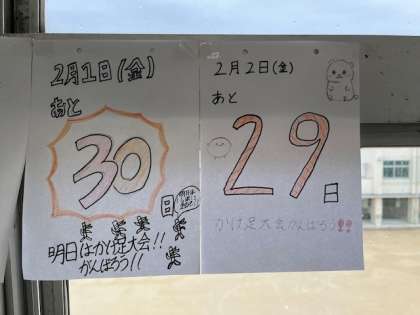 2月1日(金)
あと
30
日
明日はかけ足大会!!
がんばろう!!
2月2日(金)
あと
29
日
かけ足大会がんばろう!!